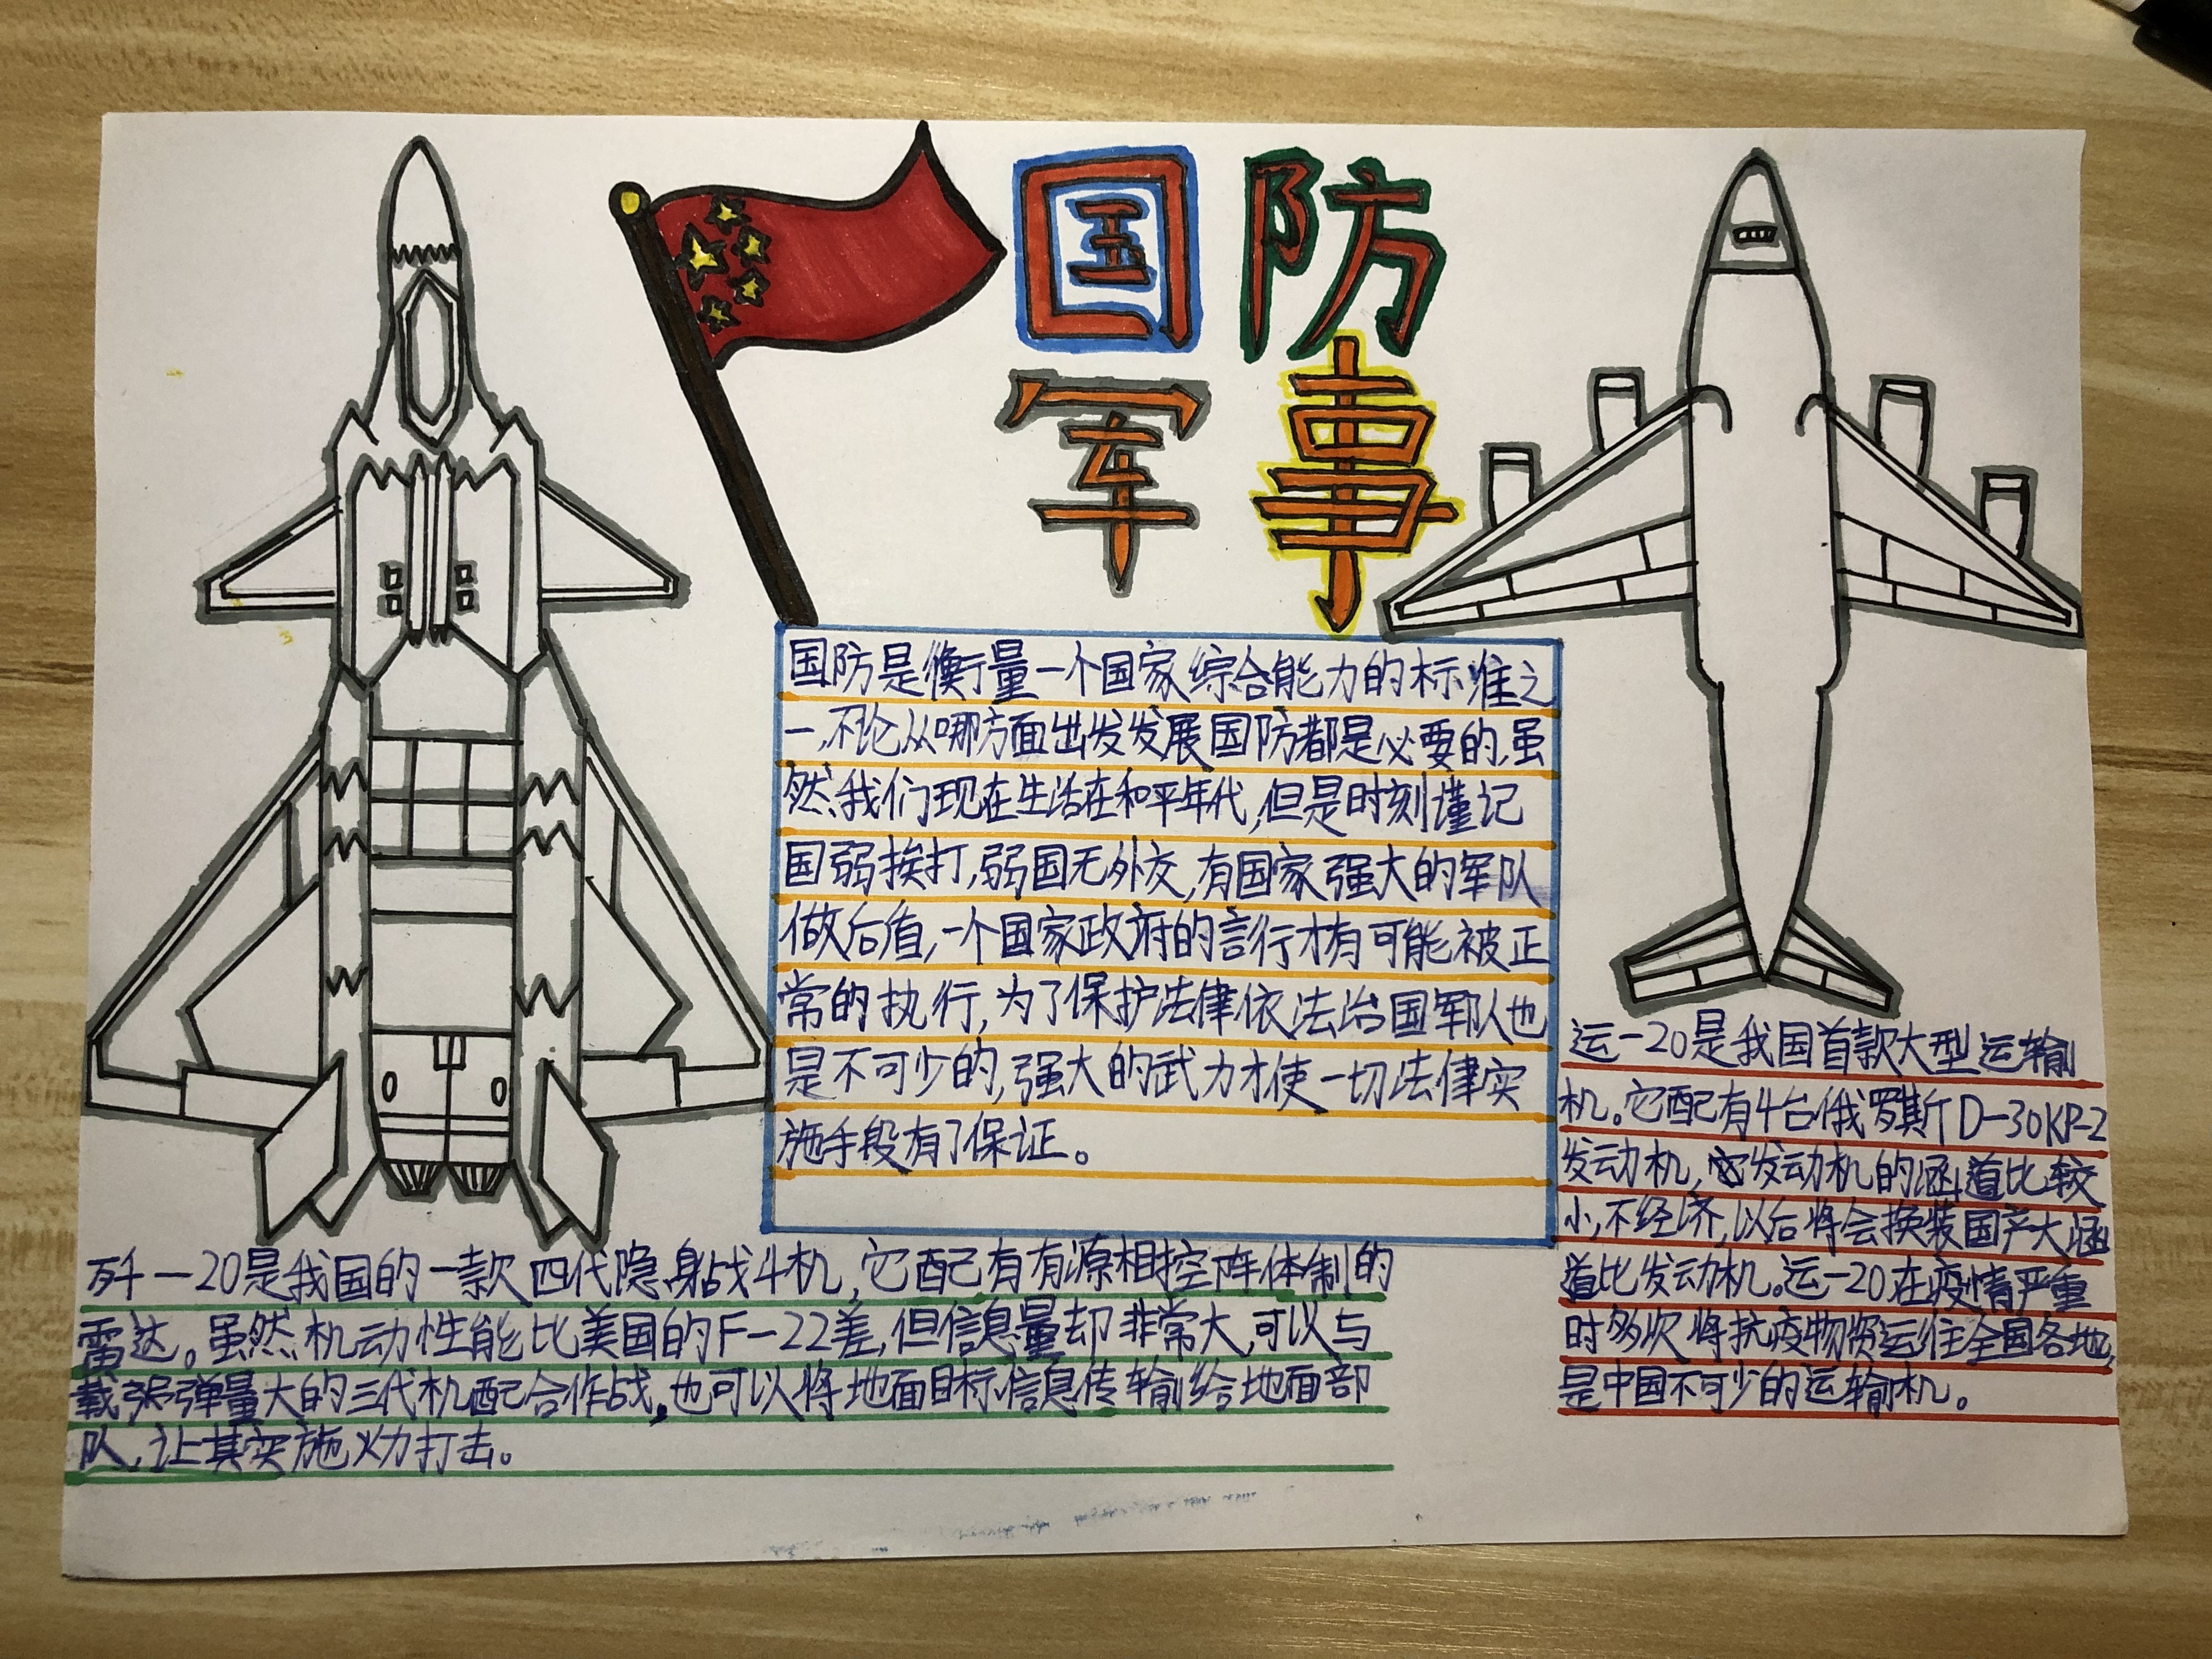 国防
军事
国防是衡量一个国家综合能力的标准之
一,不论从哪方面出发发展国防都是必要的,虽
然我们现在生活在和平年代,但是时刻谨记
国弱挨打,弱国无外交,有国家强大的军队
做后盾,一个国家政府的言行才有可能被正
常的执行,为了保护法律依法治国军队也
是不可少的,强大的武力才使一切法律实
施手段有了保证。
歼—20是我国的一款四代隐身战斗机,它配有有源相控阵体制的
雷达。虽然机动性能比美国的F—22差,但信息量却非常大,可以与
载弹量大的三代机配合作战,也可以将地面目标信息传输给地面部
队,让其实施火力打击。
运—20是我国首款大型运输
机。它配有4台俄罗斯D-30KP-2
发动机,它发动机的涵道比较
小,不经济,以后将会换装国产大涵
道比发动机。运—20在疫情严重
时多次将抗疫物资运往全国各地,
是中国不可少的运输机。